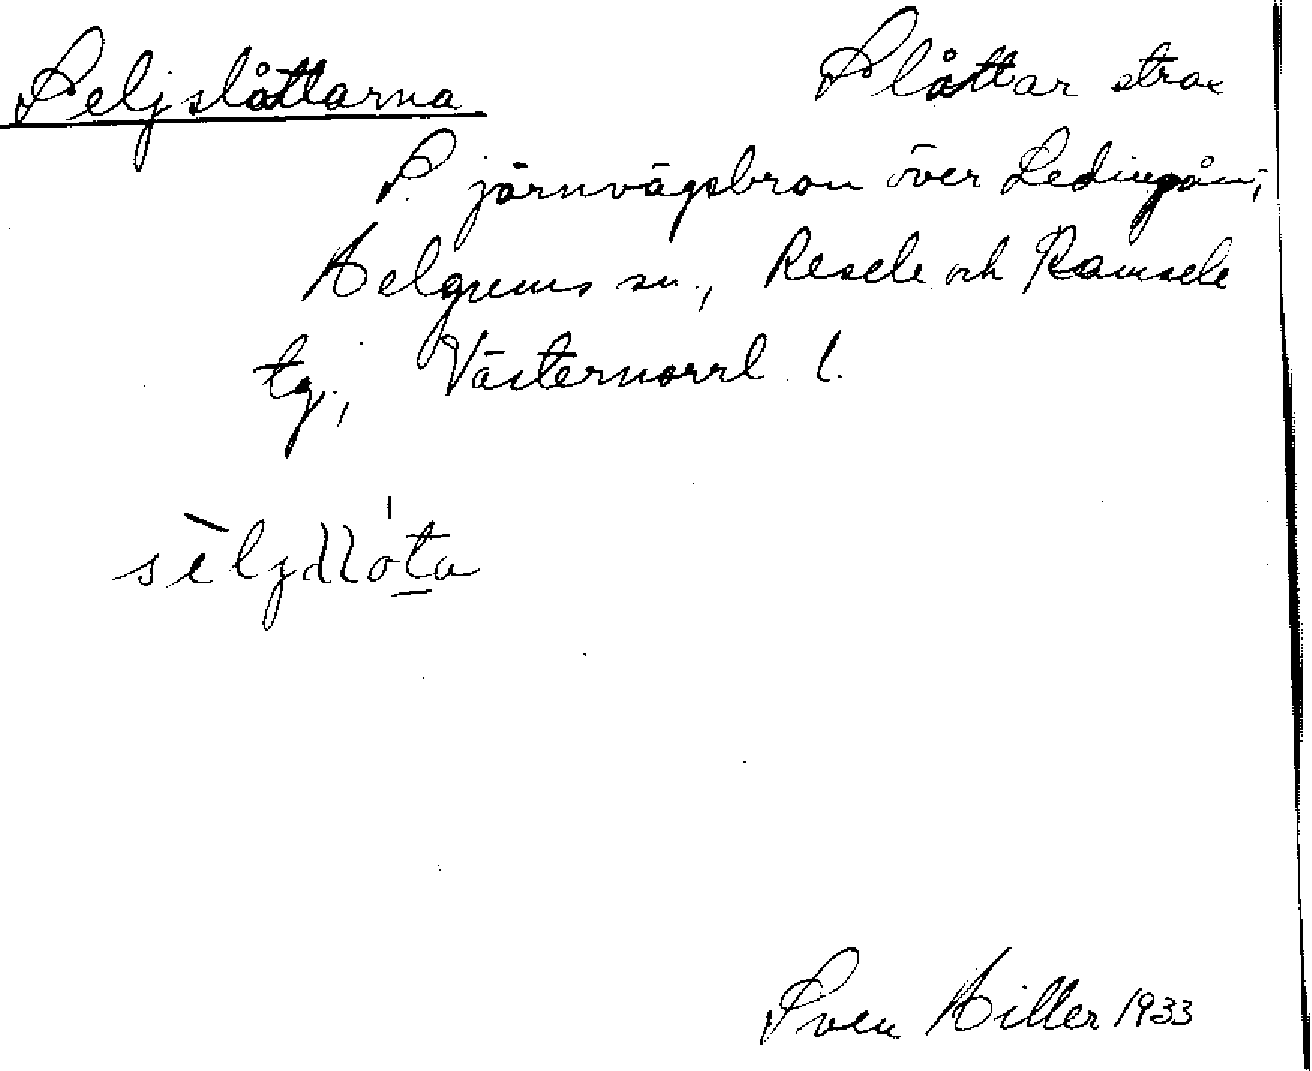 Seljslåttarna Slåttar strax
S. järnvägsbron över Ledingån,
Helgums sn., Resele och Ramsele
tg., Västernorrl. l.
Sven Hiller 1933